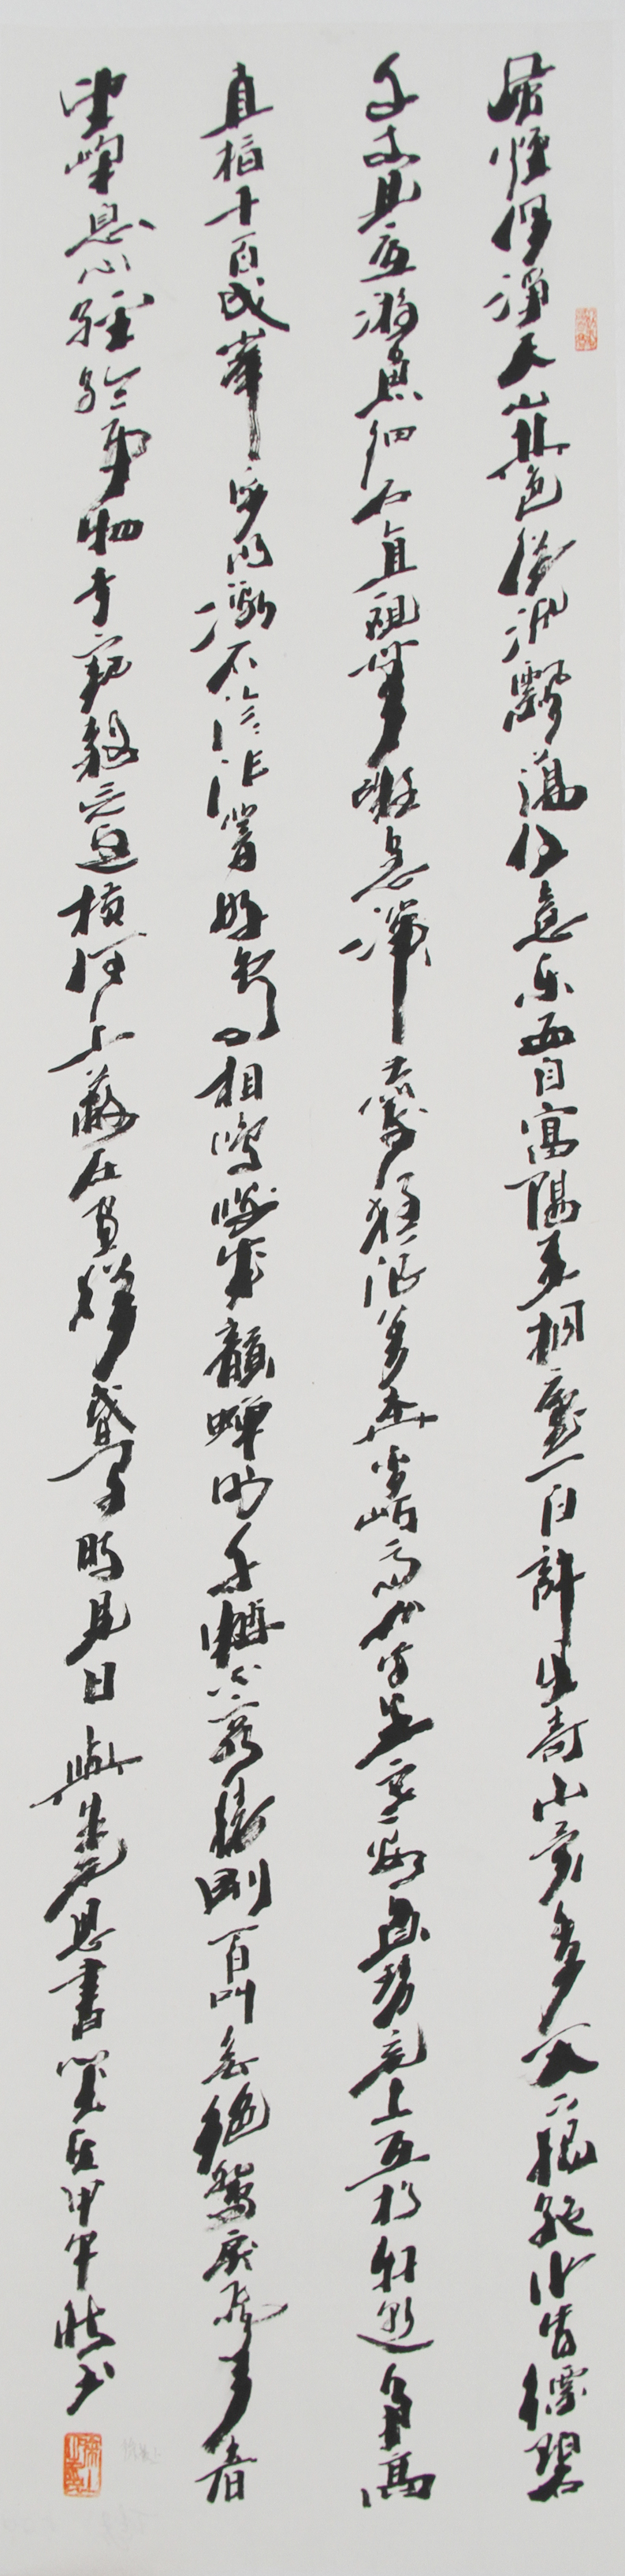 風煙俱淨天山共色從流飄蕩任意東西自富陽至桐廬一百許里奇山異水天下獨絕水皆縹碧
千丈見底游魚細石直視無礙急湍甚箭猛浪若奔夾岸高山皆生寒樹負勢競上互相軒邈爭高
直指千百成峯泉水激石泠泠作響好鳥相鳴嚶嚶成韻蟬則千轉不窮猿則百叫無絕鳶戾飛天者
望峯息心經綸事物者窺谷忘返橫柯上蔽在晝猶昏時見日與朱元思書吳均甲午秋书